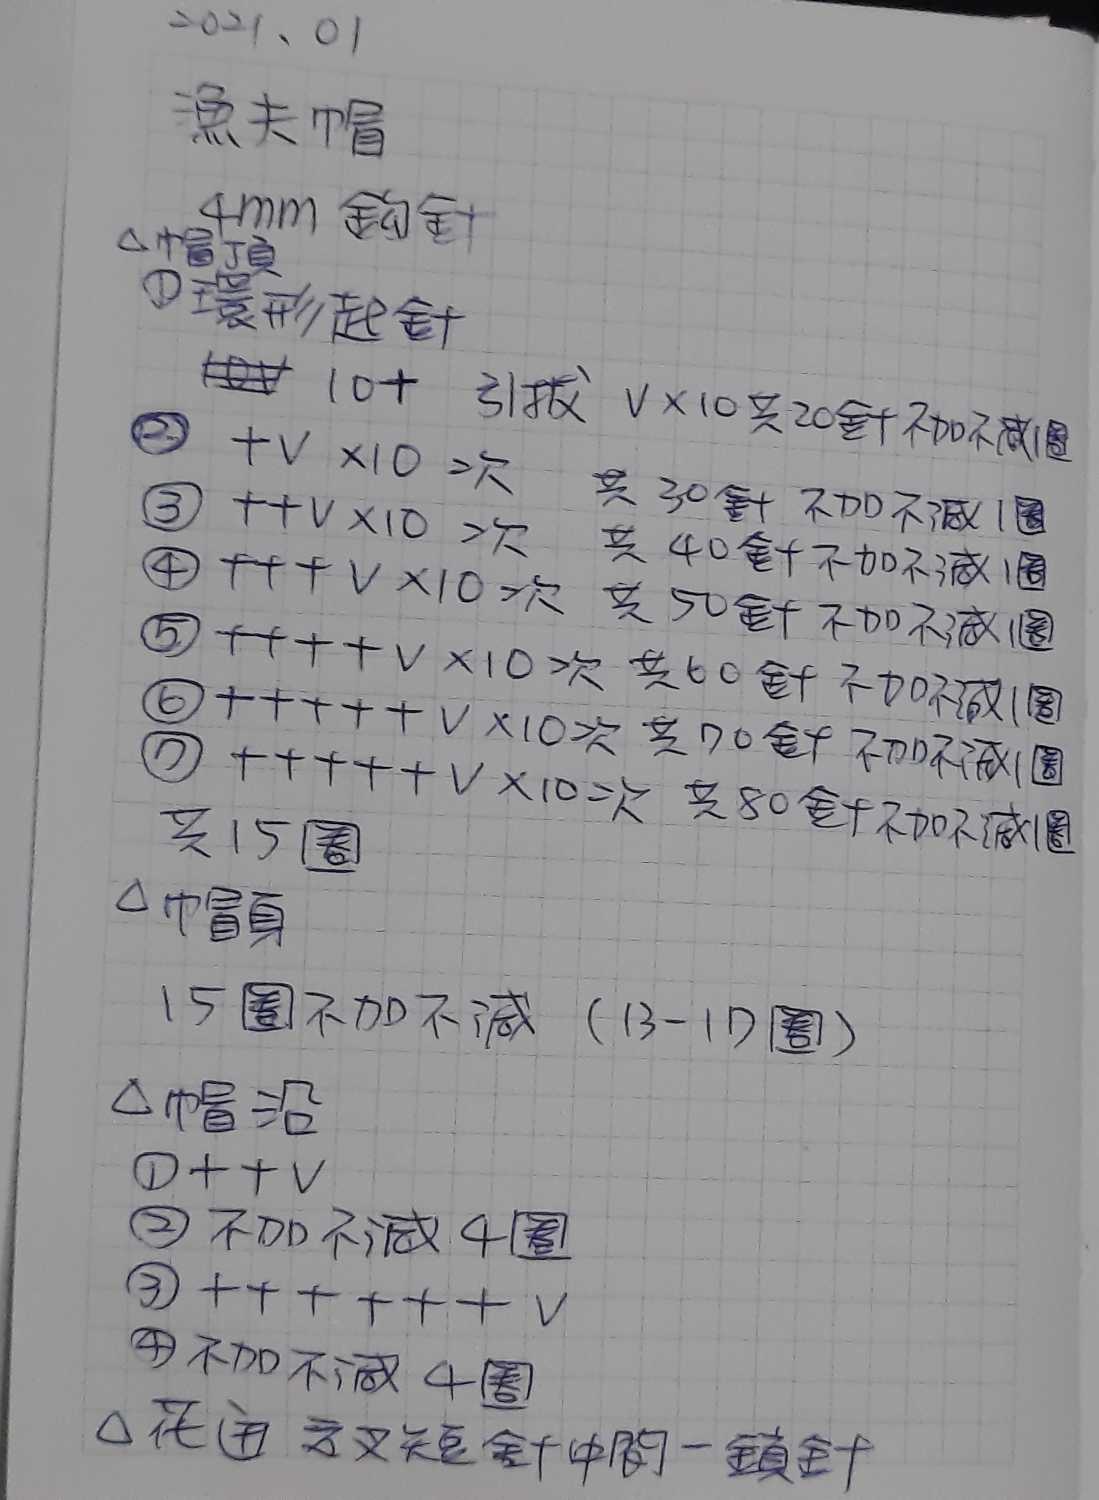 2021、01
漁夫帽
4mm 鉤針
△帽頂
①環形起針
10+ 引拔 V×10共20針不加不減1圈
② +V ×10 次 共30針 不加不減1圈
③ ++V×10 次 共40針不加不減1圈
④ +++V×10次 共50針 不加不減1圈
⑤ ++++V×10次 共60針 不加不減1圈
⑥ +++++V×10次 共70針 不加不減1圈
⑦ +++++V×10次 共80針不加不減1圈
共15圈
△帽身
15圈不加不減 (13-17圈)
△帽沿
①++V
② 不加不減 4圈
③ ++++++V
④ 不加不減 4圈
△花邊 短針中間一鎖針